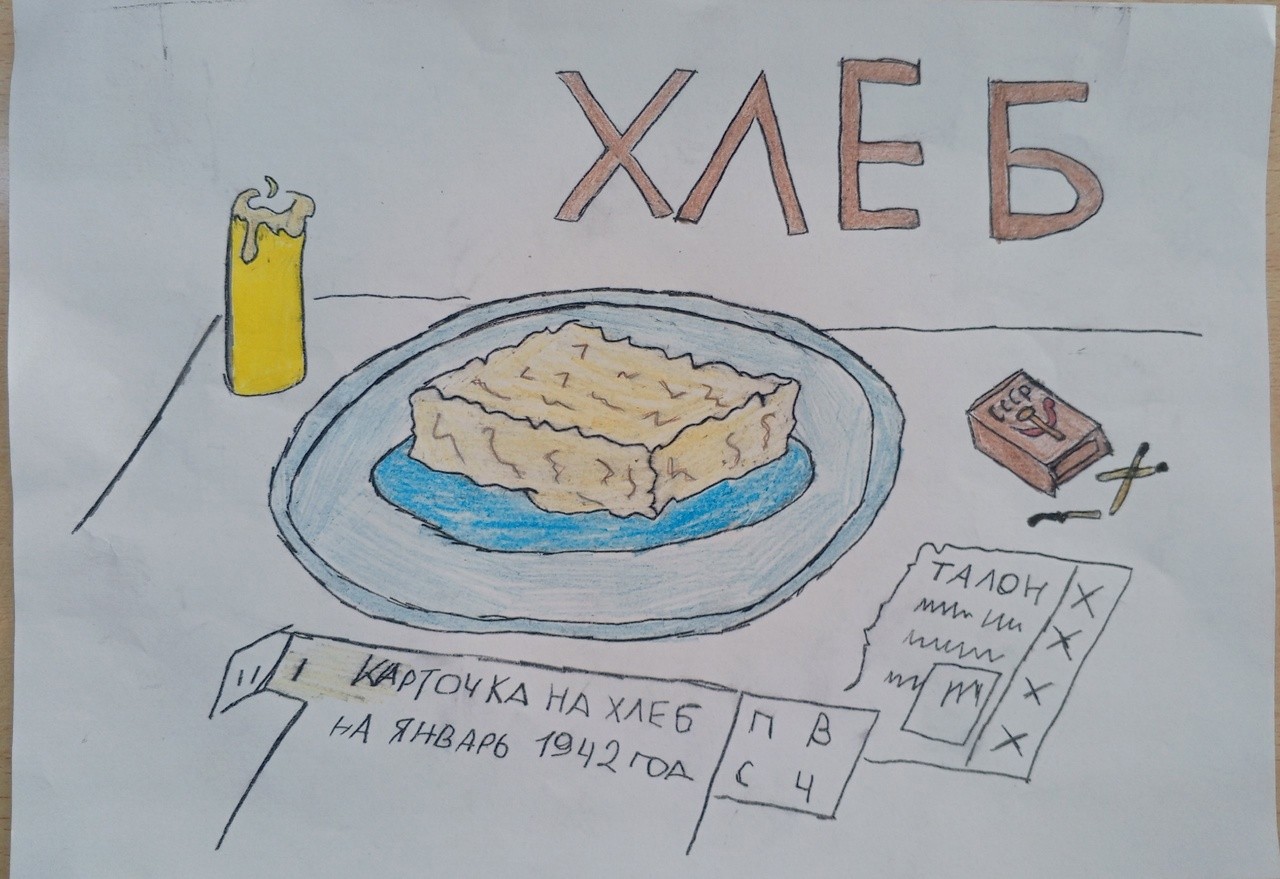 ХЛЕБ
СССР
ТАЛОН
КАРТОЧКА НА ХЛЕБ
НА ЯНВАРЬ 1942 ГОД
П В
С Ч